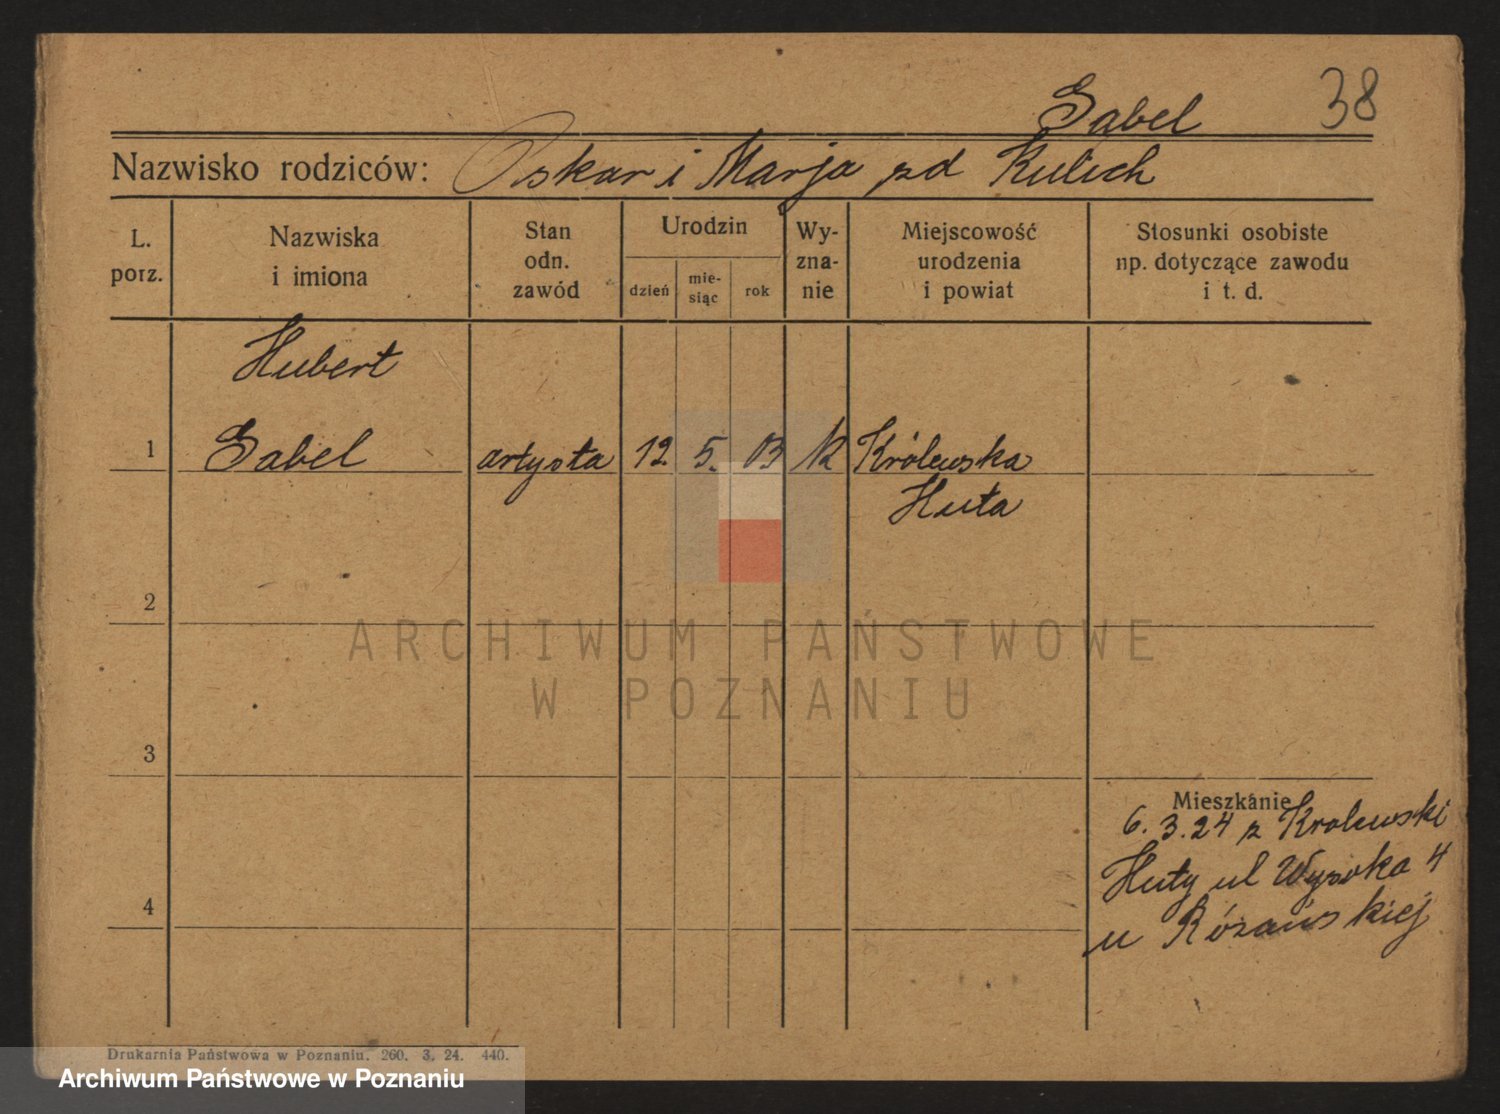 Gabel 38
Nazwisko rodziców: Oskar i Marja zd Kulich
L. porz.
Nazwiska i imiona
Stan odn. zawód
Urodzin
dzień
mie-siąc
rok
Wy-zna-nie
Miejscowość urodzenia i powiat
Stosunki osobiste np. dotyczące zawodu i t. d.
Hubert
1 Gabel artysta 12. 5. 03 k Królewska
Huta
2
ARCHIWUM PAŃSTWOWE
W POZNANIU
3
Mieszkanie
6. 3. 24 z Krolewski
Huty ul Wysoka 4
u Rózańskiej
4
Drukarnia Państwowa w Poznaniu. 260. 3. 24. 440.
Archiwum Państwowe w Poznaniu